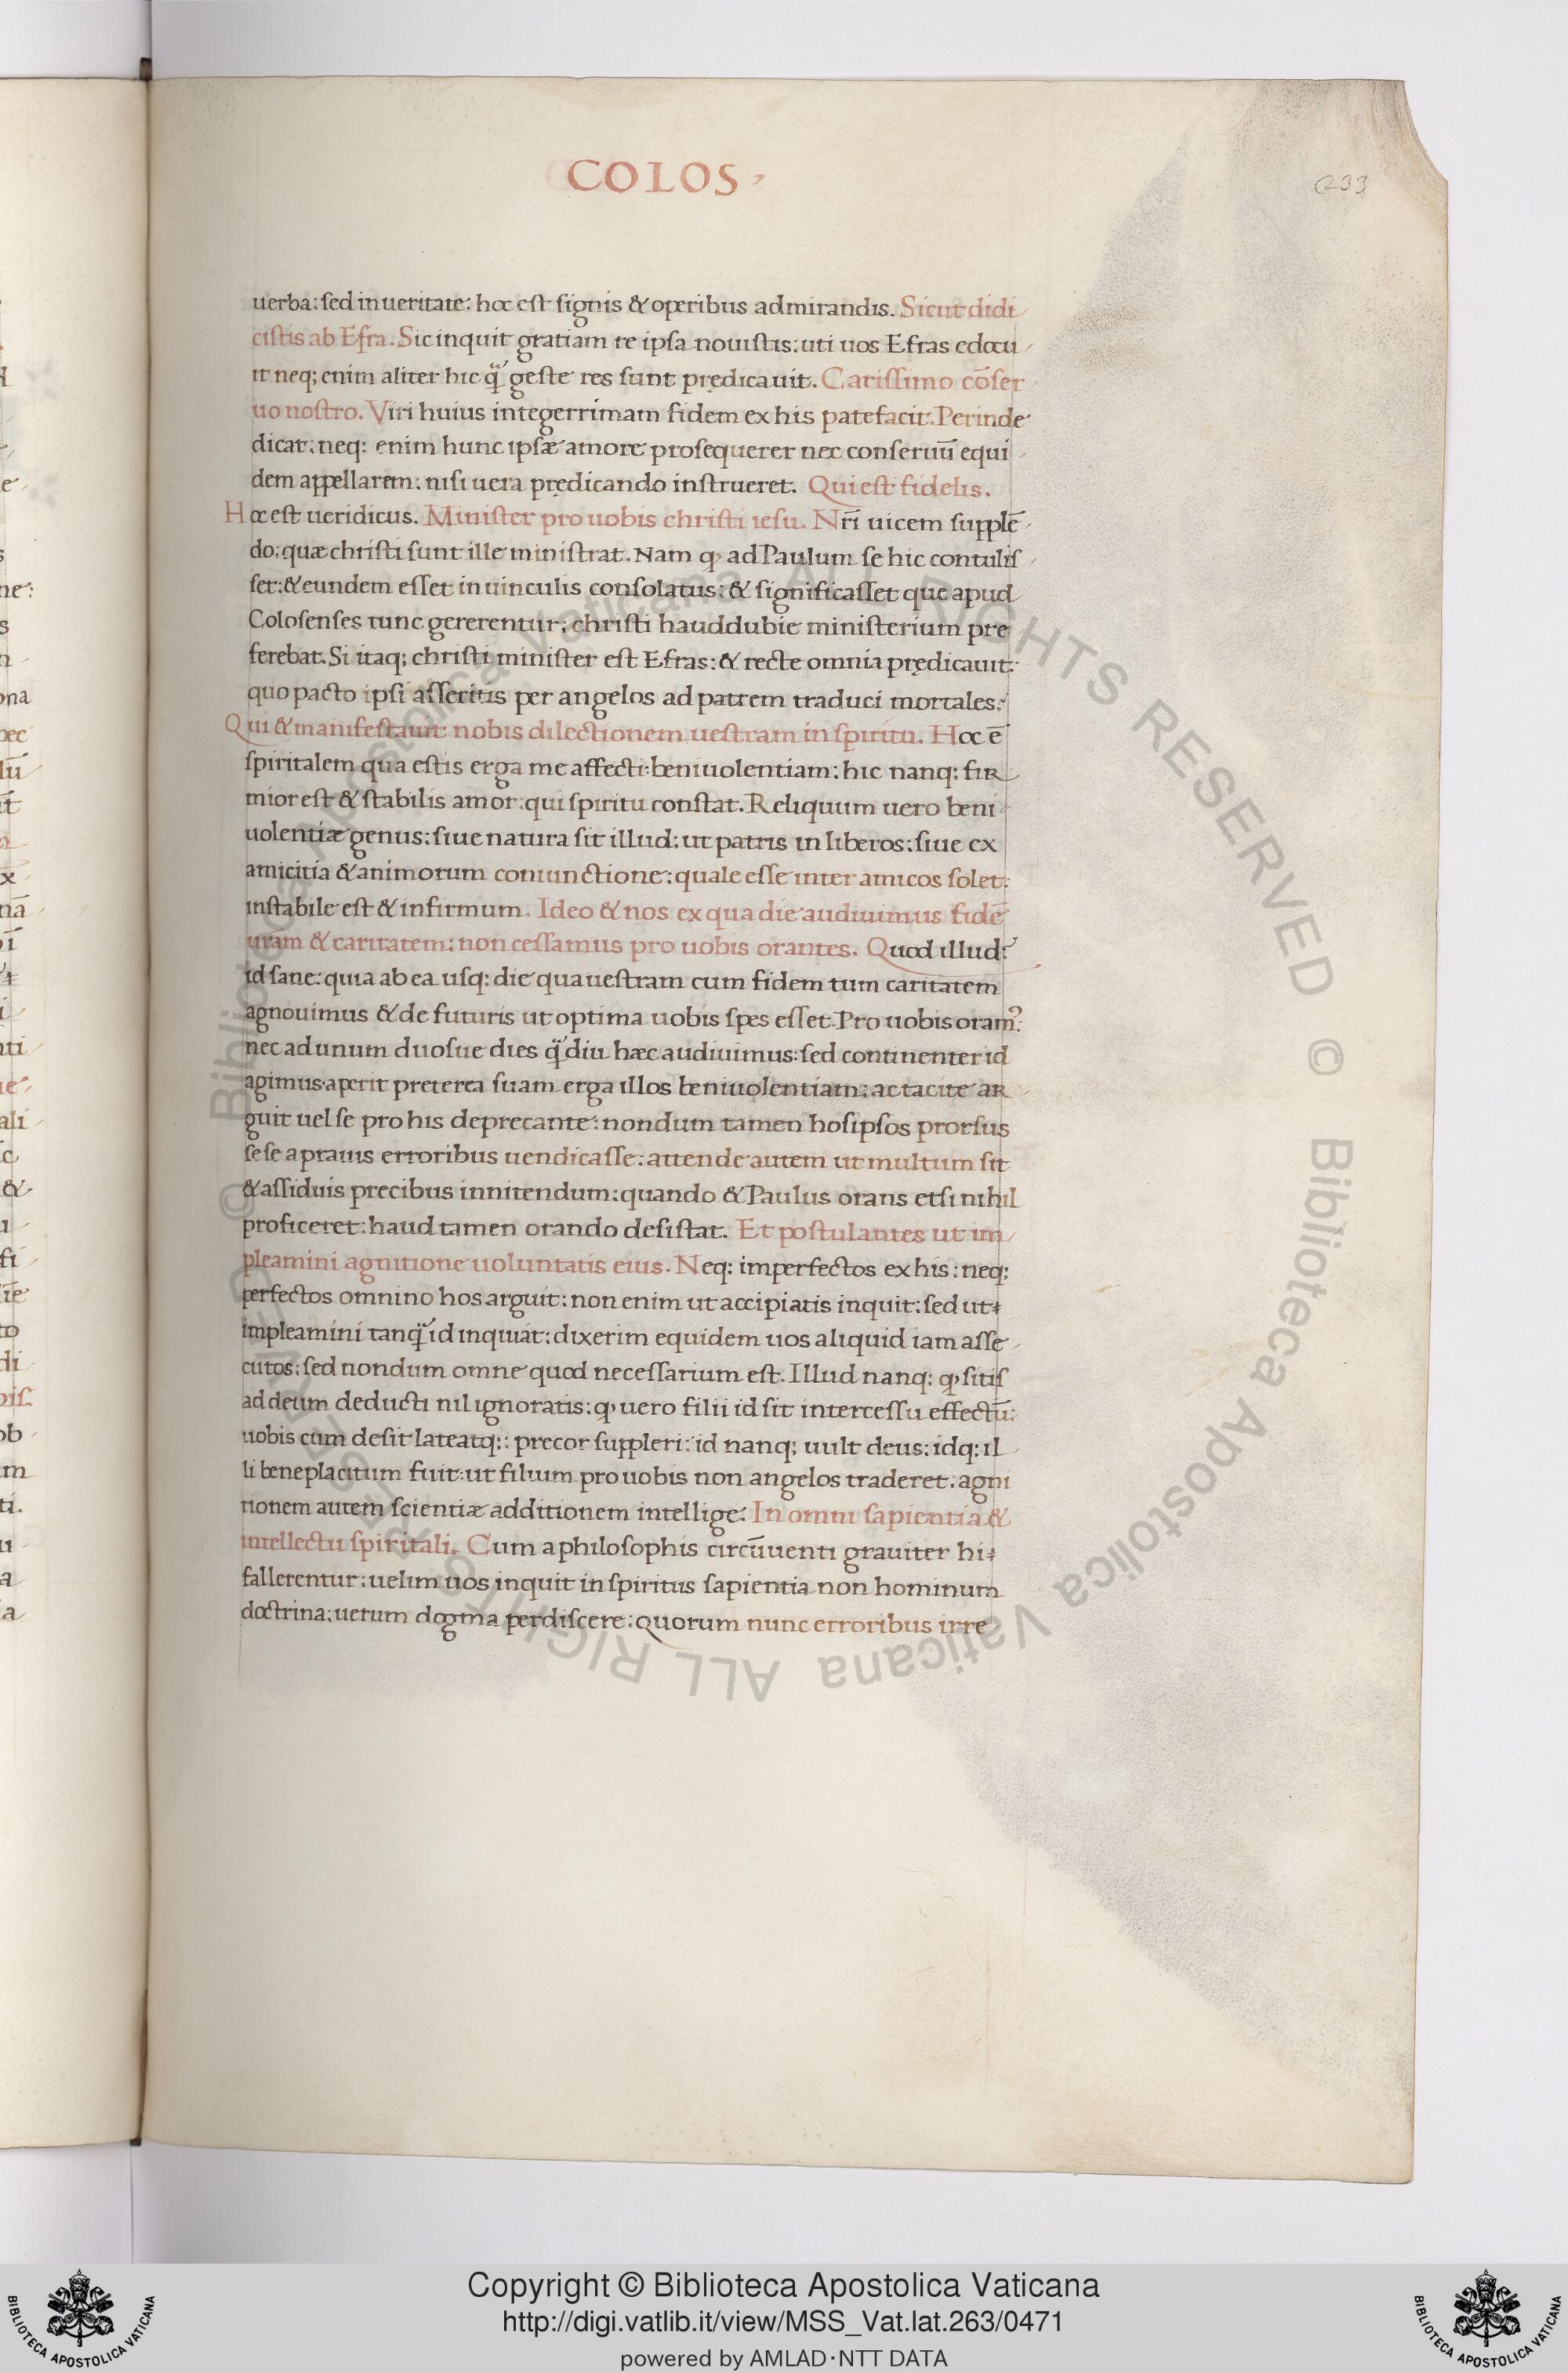 COLOS
233
uerba: sed in ueritate: hoc est signis & operibus admirandis. Sicut didi
cistis ab Efra. Sic inquit gratiam re ipsa nouistis: uti uos Efras edocu
it neq; enim aliter hic q̃ geste res sunt prędicauit. Carissimo cõser
uo nostro. Viri huius integerrimam fidem ex his patefacit. Perinde
dicat: neq: enim hunc ipsæ amore prosequerer nec conseruũ equi
dem appellarem: nisi uera prędicando instrueret. Qui est fidelis.
Hoc est ueridicus. Minister pro uobis christi iesu. Nr̃i uicem supplẽ
do: quæ christi sunt ille ministrat. Nam ꝙ ad Paulum se hic contulis
set: & eundem esset in uinculis consolatus: & significasset que apud
Colosenses tunc gererentur; christi hauddubie ministerium pre
ferebat. Si itaq; christi minister est Efras: & recte omnia prędicauit:
quo pacto ipsi asseritis per angelos ad patrem traduci mortales:
Qui & manifestauit nobis dilectionem uestram in spiritu. Hoc ẽ
spiritalem qua estis erga me affecti: beniuolentiam: hic nanq; fir
mior est & stabilis amor: qui spiritu constat. Reliquum uero beni
uolentiæ genus: siue natura sit illud: ut patris in liberos: siue ex
amicitia & animorum coniunctione: quale esse inter amicos solet:
instabile est & infirmum. Ideo & nos ex qua die audiuimus fidẽ
uram & caritatem: non cessamus pro uobis orantes. Quod illud?
id sane: quia ab ea usq: die qua uestram cum fidem tum caritatem
agnouimus & de futuris ut optima uobis spes esset. Pro uobis oramꝰ:
nec ad unum duosue dies q̃diu hæc audiuimus: sed continenter id
agimus. aperit preterea suam erga illos beniuolentiam: ac tacite ar
guit uel se pro his deprecante: nondum tamen hosipsos prorsus
sese a prauis erroribus uendicasse: attende autem ut multum sit
& assiduis precibus innitendum: quando & Paulus orans etsi nihil
proficeret: haud tamen orando desistat. Et postulantes ut im
pleamini agnitione uoluntatis eius. Neq: imperfectos ex his: neq;
perfectos omnino hos arguit: non enim ut accipiatis inquit: sed ut
impleamini tanq̃ id inquiat: dixerim equidem uos aliquid iam asse
cutos: sed nondum omne quod necessarium est. Illud nanq: ꝙ sitis
ad deum deducti nil ignoratis: ꝙ uero filii id sit intercessu effectũ:
uobis cum desit lateatq;: precor suppleri: id nanq; uult deus: idq: il
li beneplacitum fuit: ut filium pro uobis non angelos traderet. agni
tionem autem scientiæ additionem intellige. In omni sapientia &
intellectu spiritali. Cum a philosophis circũuenti grauiter hi
fallerentur: uelim uos inquit in spiritus sapientia non hominum
doctrina: uerum dogma perdiscere: quorum nunc erroribus irre
© Biblioteca Apostolica Vaticana ALL RIGHTS RESERVED © Biblioteca Apostolica Vaticana ALL RIGHTS RESERVED
Copyright © Biblioteca Apostolica Vaticana
http://digi.vatlib.it/view/MSS_Vat.lat.263/0471
powered by AMLAD·NTT DATA
BIBLIOTECA APOSTOLICA VATICANA
BIBLIOTECA APOSTOLICA VATICANA